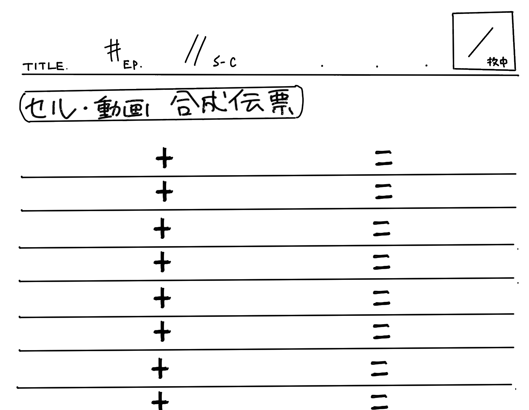 TITLE. # EP. // S-C . . . / 枚中
セル・動画 合成伝票
+ =
+ =
+ =
+ =
+ =
+ =
+ =
+ =